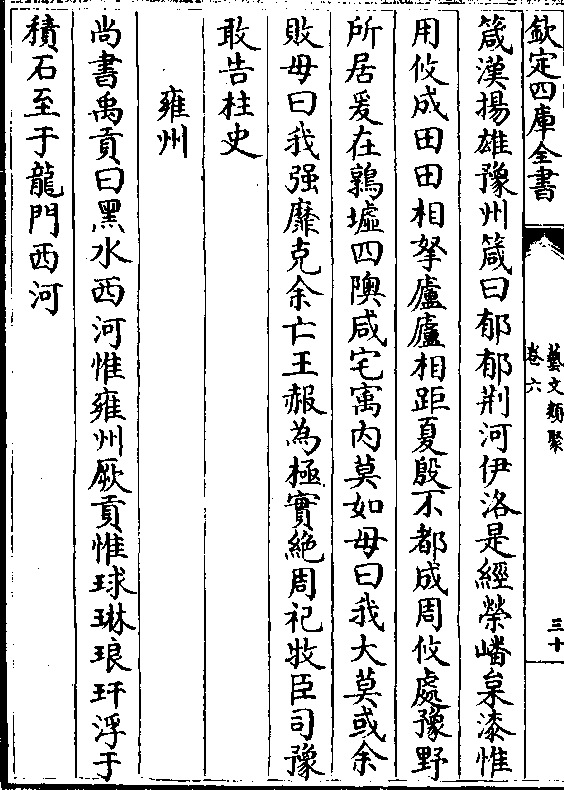 欽定四庫全書
藝文類聚
卷六
三十
箴漢揚雄豫州箴曰郁郁荆河伊洛是經榮嶓枲漆惟
用攸成田田相拏廬廬相距夏殷不都成周攸處豫野
所居爰在鶉墟四隩咸宅寓内莫如毋曰我大莫或余
敗毋曰我强靡克余亡王赧為極實絶周祀牧臣司豫
敢告柱史
雍州
尚書禹貢曰黑水西河惟雍州厥貢惟球琳琅玕浮于
積石至于龍門西河